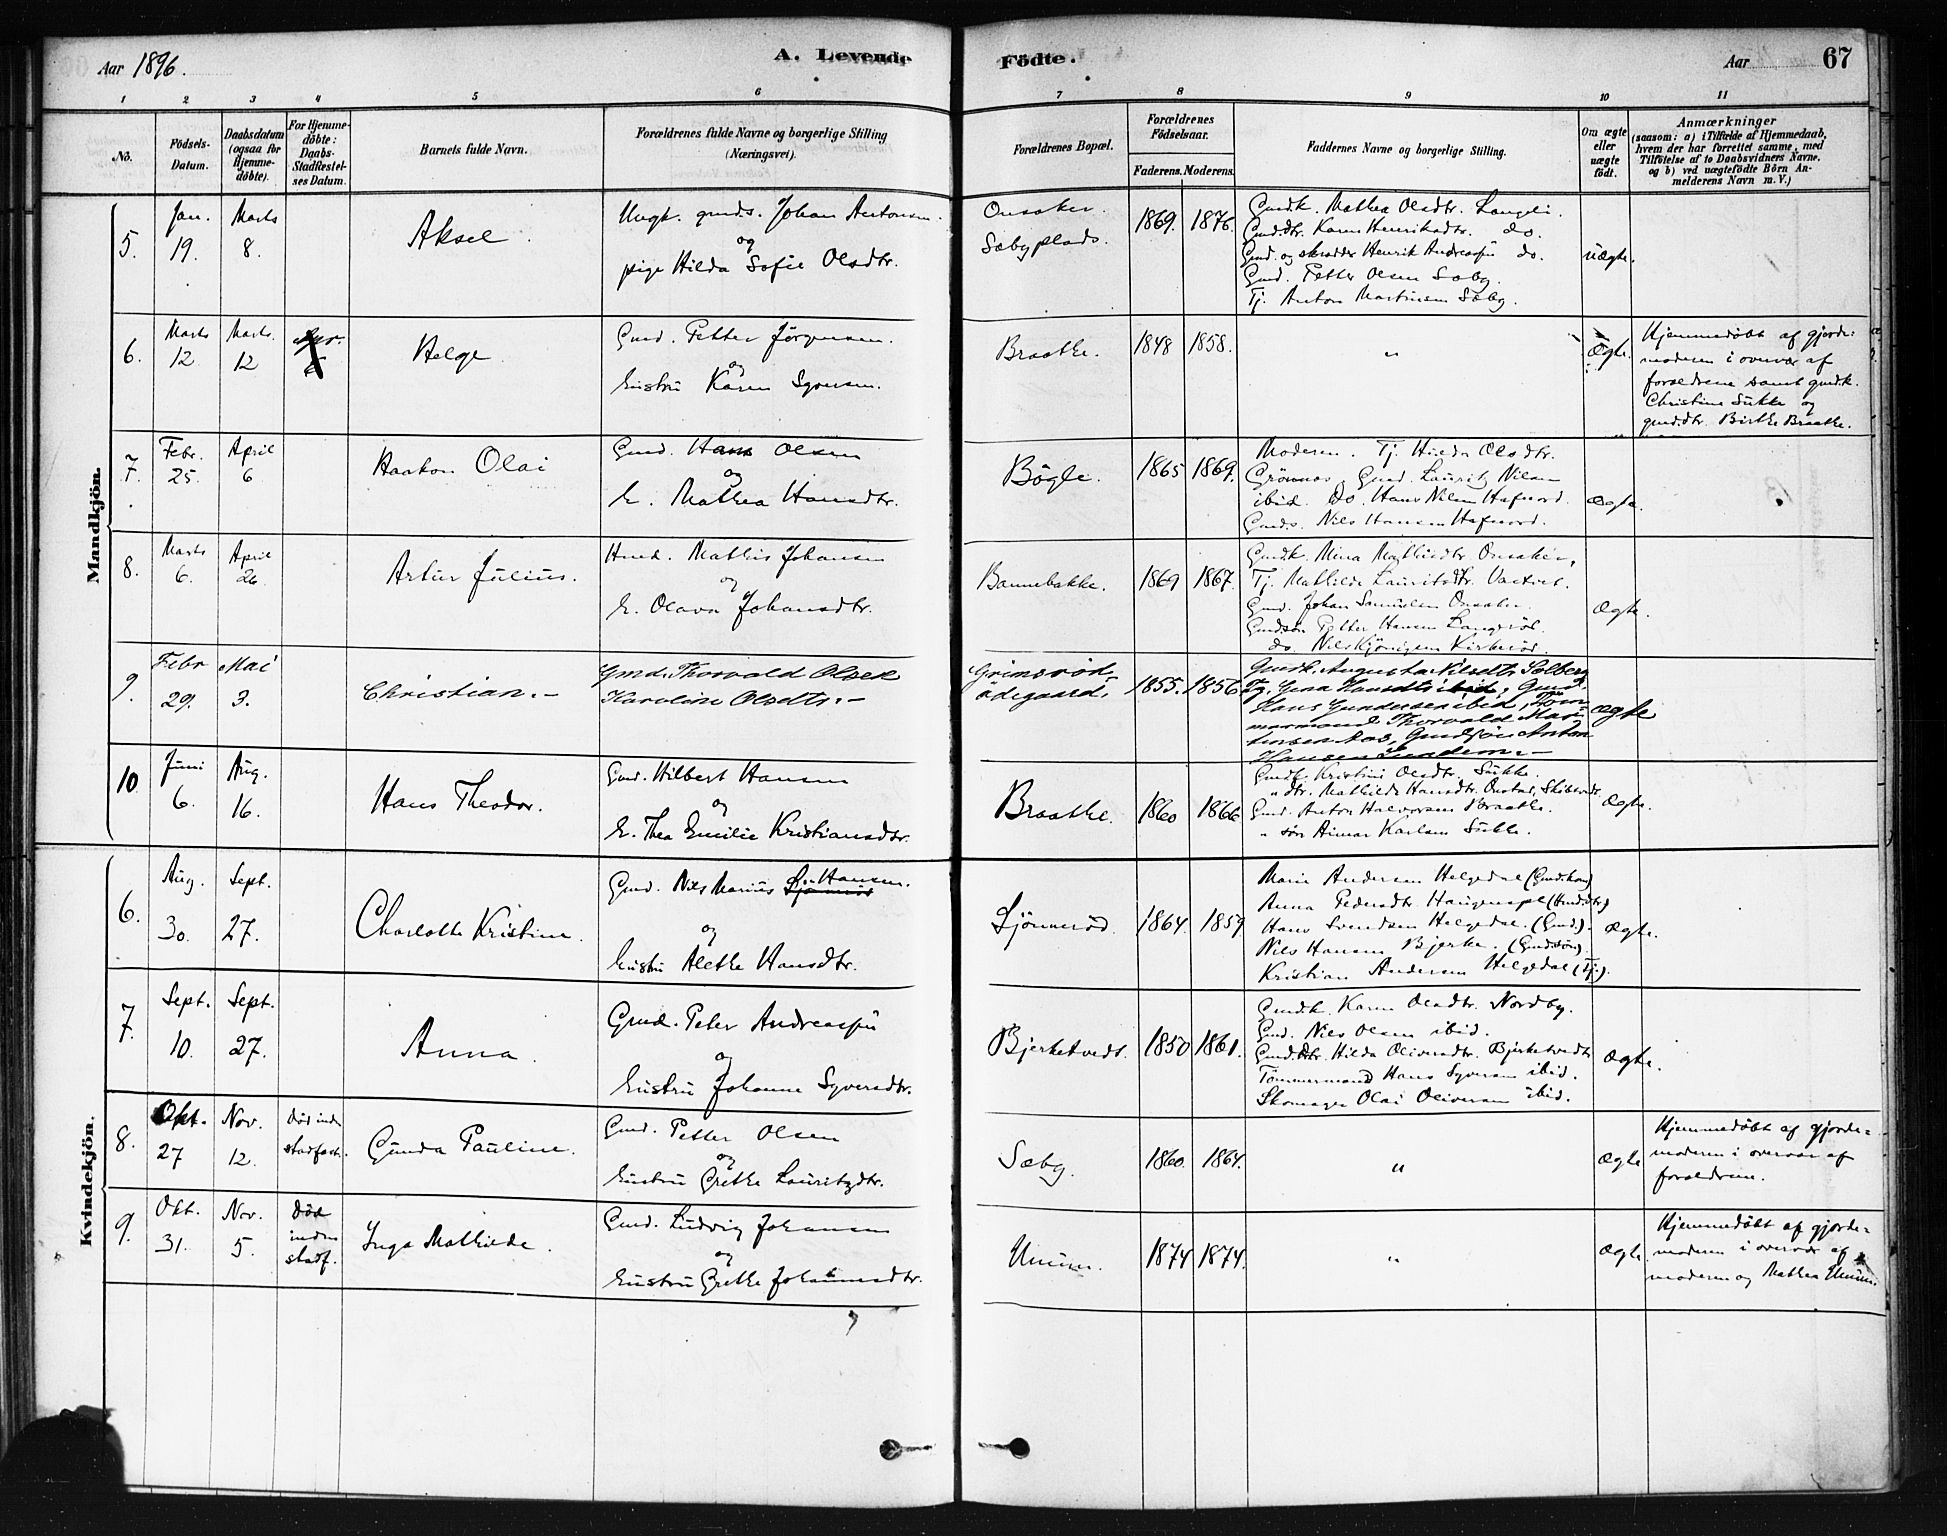 Aar 1896.
A. Levende
Födte.
Aar
67
1 2 3 4 5 6 7 8 9 10 11
No.
Födsels-
Datum.
Daabsdatum
(ogsaa for
Hjemme-
döbte).
For Hjemme-
döbte:
Daabs-
Stadfæstel-
ses Datum.
Barnets fulde Navn.
Forældrenes fulde Navne og borgerlige Stilling
(Næringsvei).
Forældrenes Bopæl.
Forældrenes
Födselsaar.
Faderens. Moderens.
Faddernes Navne og borgerlige Stilling.
Om ægte
eller
uægte
födt.
Anmærkninger
(saasom: a) i Tilfælde af Hjemmedaab,
hvem der har forrettet samme, med
Tilföielse af to Daabsvidners Navne,
og b) ved uægtefödte Börn An-
melderens Navn m. V.)
Mandkjön.
5.
Jan.
19.
Marts
8.
Aksel
Ungk. gmds. Johan Antonsen
og
pige Hilda Sofie Olsdtr.
Onsaker
Sæbyplads.
1869. 1876.
Gmdk. Mathea Olsdtr. Langeli.
Gmd.dtr. Karen Henriksdtr. do.
Gmd. og skrædder Henrik Andreassen do.
Gmd. Petter Olsen Sæby.
Tj. Anton Martinsen Sæby.
uægte.
6.
Marts
12
Marts.
12
Helge
Gmd. Petter Jörgensen.
og
Hustru Karen Syversen.
Braathe.
1848 1858.
"
Ægte.
Hjemmedöbt af gjorde-
moderen i overvær af
forældrene samt gmdk.
Christine Sukke og
gmd.dtr. Birthe Braathe.
7.
Febr.
25.
April
6
Haakon Olai
Gmd. Hans Olsen
og
H. Mathea Hansdtr.
Bögle.
1865 1869.
Moderen. Tj. Hulda Olsdtr.
Grönnes, Gmd. Lauritz Nilsen
ibid. Do. Hans Nilsen Hafnord.
Gmds. Nils Hansen Hafnord.
Ægte.
8.
Marts
6.
April
26.
Artur Julius.
Hmd. Mathis Johansen
og
H. Olava Johansdtr.
Bannebakke.
1869 1867.
Gmdk. Mina Mathisdtr. Onsaker,
Tj. Mathilde Lauritsdtr. Vastvet.
Gmd. Johan Samuelsen Onsaker.
Gmdsön Petter Hansen
do. Nils Kjönigsen Kirkeröd.
Ægte.
9.
Febr
29.
Mai
3.
Christian. –
Gmd. Thorvald Olsen
Karoline Olsdtr. –
Grimsröd-
ödegaard,
1855. 1856
Gmdk. Augusta Nilsdtr. Solberg
Tj. Gina Hansdtr ibid, Gmd.
Hans Gundersen ibid, Töm-
mermand Thorvald Mar-
tinsen Aas, Gmdsön Anton
Hansen
Ægte
10.
Juni
6.
Aug.
16.
Hans Theodor.
Gmd. Hilbert Hansen
og
H. Thea Emilie Kristiansdtr.
Braathe.
1860 1866
Gmdk. Kristine Olsdtr. Sukke.
" dtr. Mathilde Hansdtr.
Gmd. Anton Halvorsen Braathe.
" sön Aimar Karlsen Sukke.
Ægte.
Kvindekjön.
6.
Aug.
30.
Sept.
27.
Charlotte Kristine.
Gmd. Nils Marius Hansen.
og
Hustru Alethe Hansdtr.
Ljönneröd.
1864. 1859
Marie Andersen Helgedal (Gmd.kone)
Anna Pedersdtr. Haugenspl (Hmd.dtr.)
Hans Svendsen Helgedal. (Gmd.).
Nils Hansen Bjerke. (Gmdsön).
Kristian Andersen Helgedal (Tj.).
Ægte.
7.
Sept.
10.
Sept.
27.
Anna.
Gmd. Peter Andreassen
og
Hustru Johanne Syversdtr.
Bjerketvedt.
1850 1861.
Gmdk. Karen Olsdtr. Nordby.
Gmd. Nils Olsen ibid.
Gmd.dtr. Hilda Oliversdtr. Bjerketvedt
Tömmermand Hans Syversen ibid.
Skomager Olai Oliversen ibid.
Ægte.
8.
Okt.
27
Nov.
12.
Död inden
stadfæst.
Gunda Pauline.
Gmd. Petter Olsen
og
Hustru Grethe Lauritzdtr.
Sæby.
1860. 1864.
"
Ægte
Hjemmedöbt af gjorde-
moderen i overvær af
forældrene.
9.
Okt.
31.
Nov.
5.
Död
inden
stadf.
Inga Mathilde.
Gmd. Ludvig Johansen
og
Hustru Grethe Johannesdtr.
Unum.
1874 1874.
"
Ægte.
Hjemmedöbt af gjorde-
moderen i overvær af
moderen og Mathea Unum.